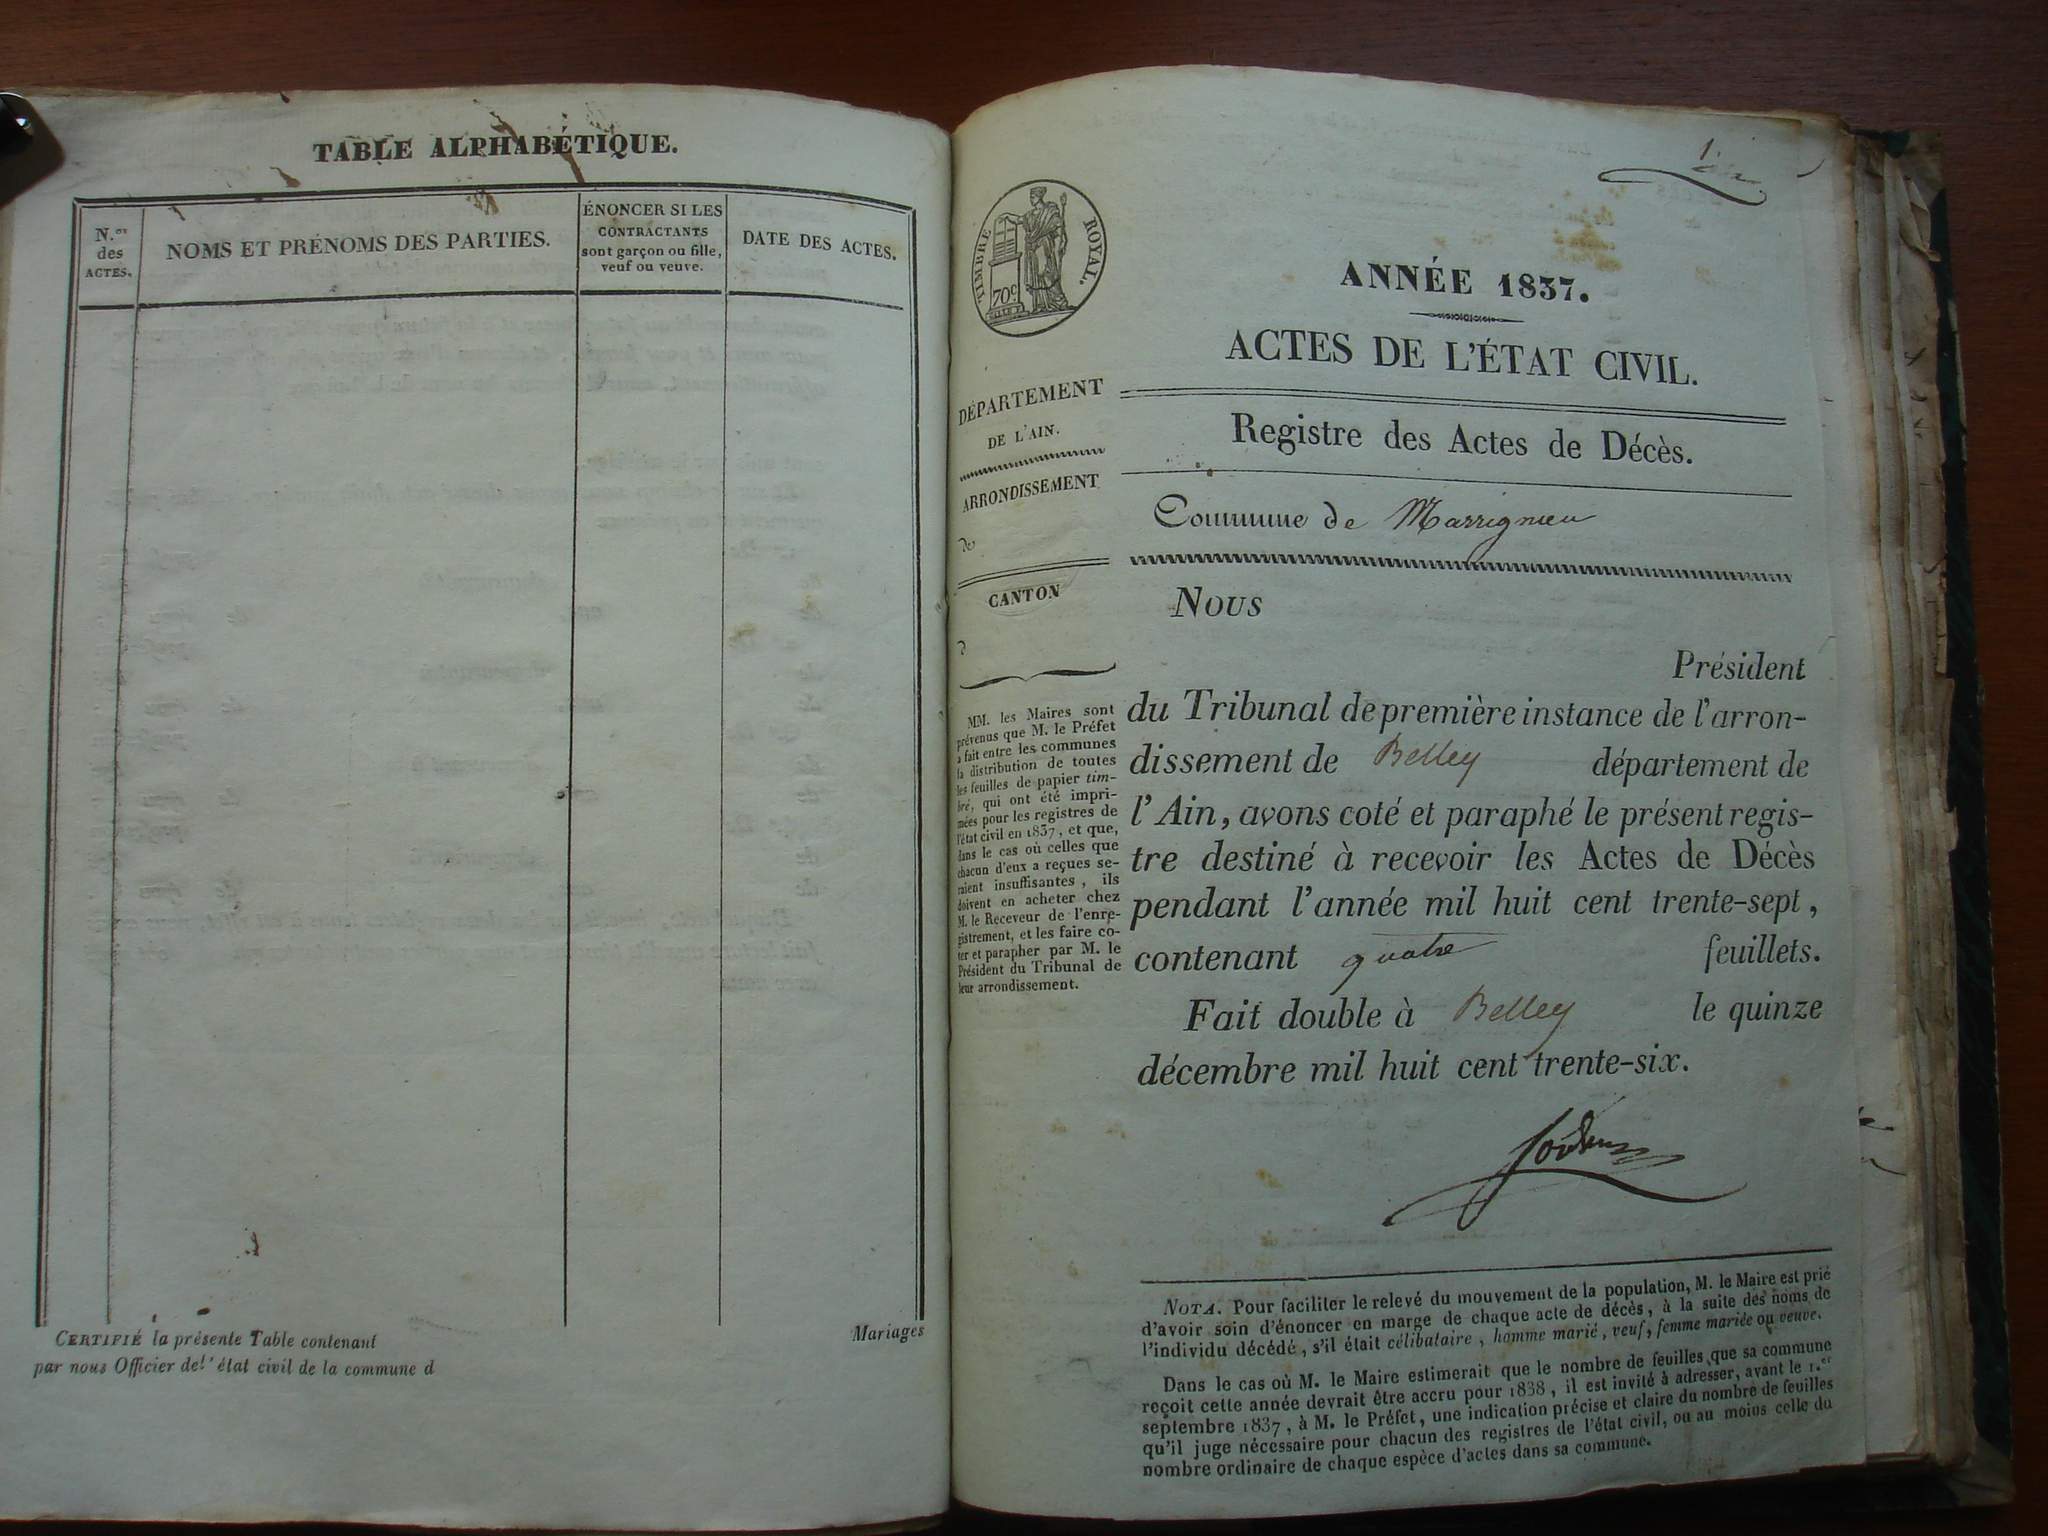 TABLE ALPHABÉTIQUE.
N.os
des
ACTES.
NOMS ET PRÉNOMS DES PARTIES.
ÉNONCER SI LES
CONTRACTANTS
sont garçon ou fille,
veuf ou veuve.
DATE DES ACTES.
CERTIFIÉ la présente Table contenant
Mariages
par nous Officier de l'état civil de la commune d
1
TIMBRE ROYAL.
70c
DÉPARTEMENT
DE L'AIN.
ARRONDISSEMENT
de
CANTON
d
MM. les Maires sont
prévenus que M. le Préfet
a fait entre les communes
la distribution de toutes
les feuilles de papier tim-
bré, qui ont été impri-
mées pour les registres de
l'état civil en 1837, et que,
dans le cas où celles que
chacun d'eux a reçues se-
raient insuffisantes, ils
doivent en acheter chez
M. le Receveur de l'enre-
gistrement, et les faire co-
ter et parapher par M. le
Président du Tribunal de
leur arrondissement.
ANNÉE 1837.
ACTES DE L'ÉTAT CIVIL.
Registre des Actes de Décès.
Commune de Marrignieu
Nous
Président
du Tribunal de première instance de l'arron-
dissement de Belley département de
l'Ain, avons coté et paraphé le présent regis-
tre destiné à recevoir les Actes de Décès
pendant l'année mil huit cent trente-sept,
contenant quatre feuillets.
Fait double à Belley le quinze
décembre mil huit cent trente-six.
NOTA. Pour faciliter le relevé du mouvement de la population, M. le Maire est prié
d'avoir soin d'énoncer en marge de chaque acte de décès, à la suite des noms de
l'individu décédé, s'il était célibataire, homme marié, veuf, femme mariée ou veuve.
Dans le cas où M. le Maire estimerait que le nombre de feuilles que sa commune
reçoit cette année devrait être accru pour 1838, il est invité à adresser, avant le 1.er
septembre 1837, à M. le Préfet, une indication précise et claire du nombre de feuilles
qu'il juge nécessaire pour chacun des registres de l'état civil, ou au moins celle du
nombre ordinaire de chaque espèce d'actes dans sa commune.